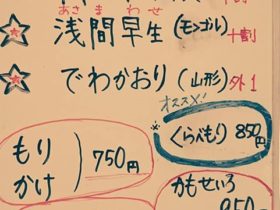 十割
あさ ま わせ
浅間早生(モンゴル)十割
でわかおり(山形)外1
オススメ!
くらべもり 850円
もり
かけ
750円
かもせいろ
950円